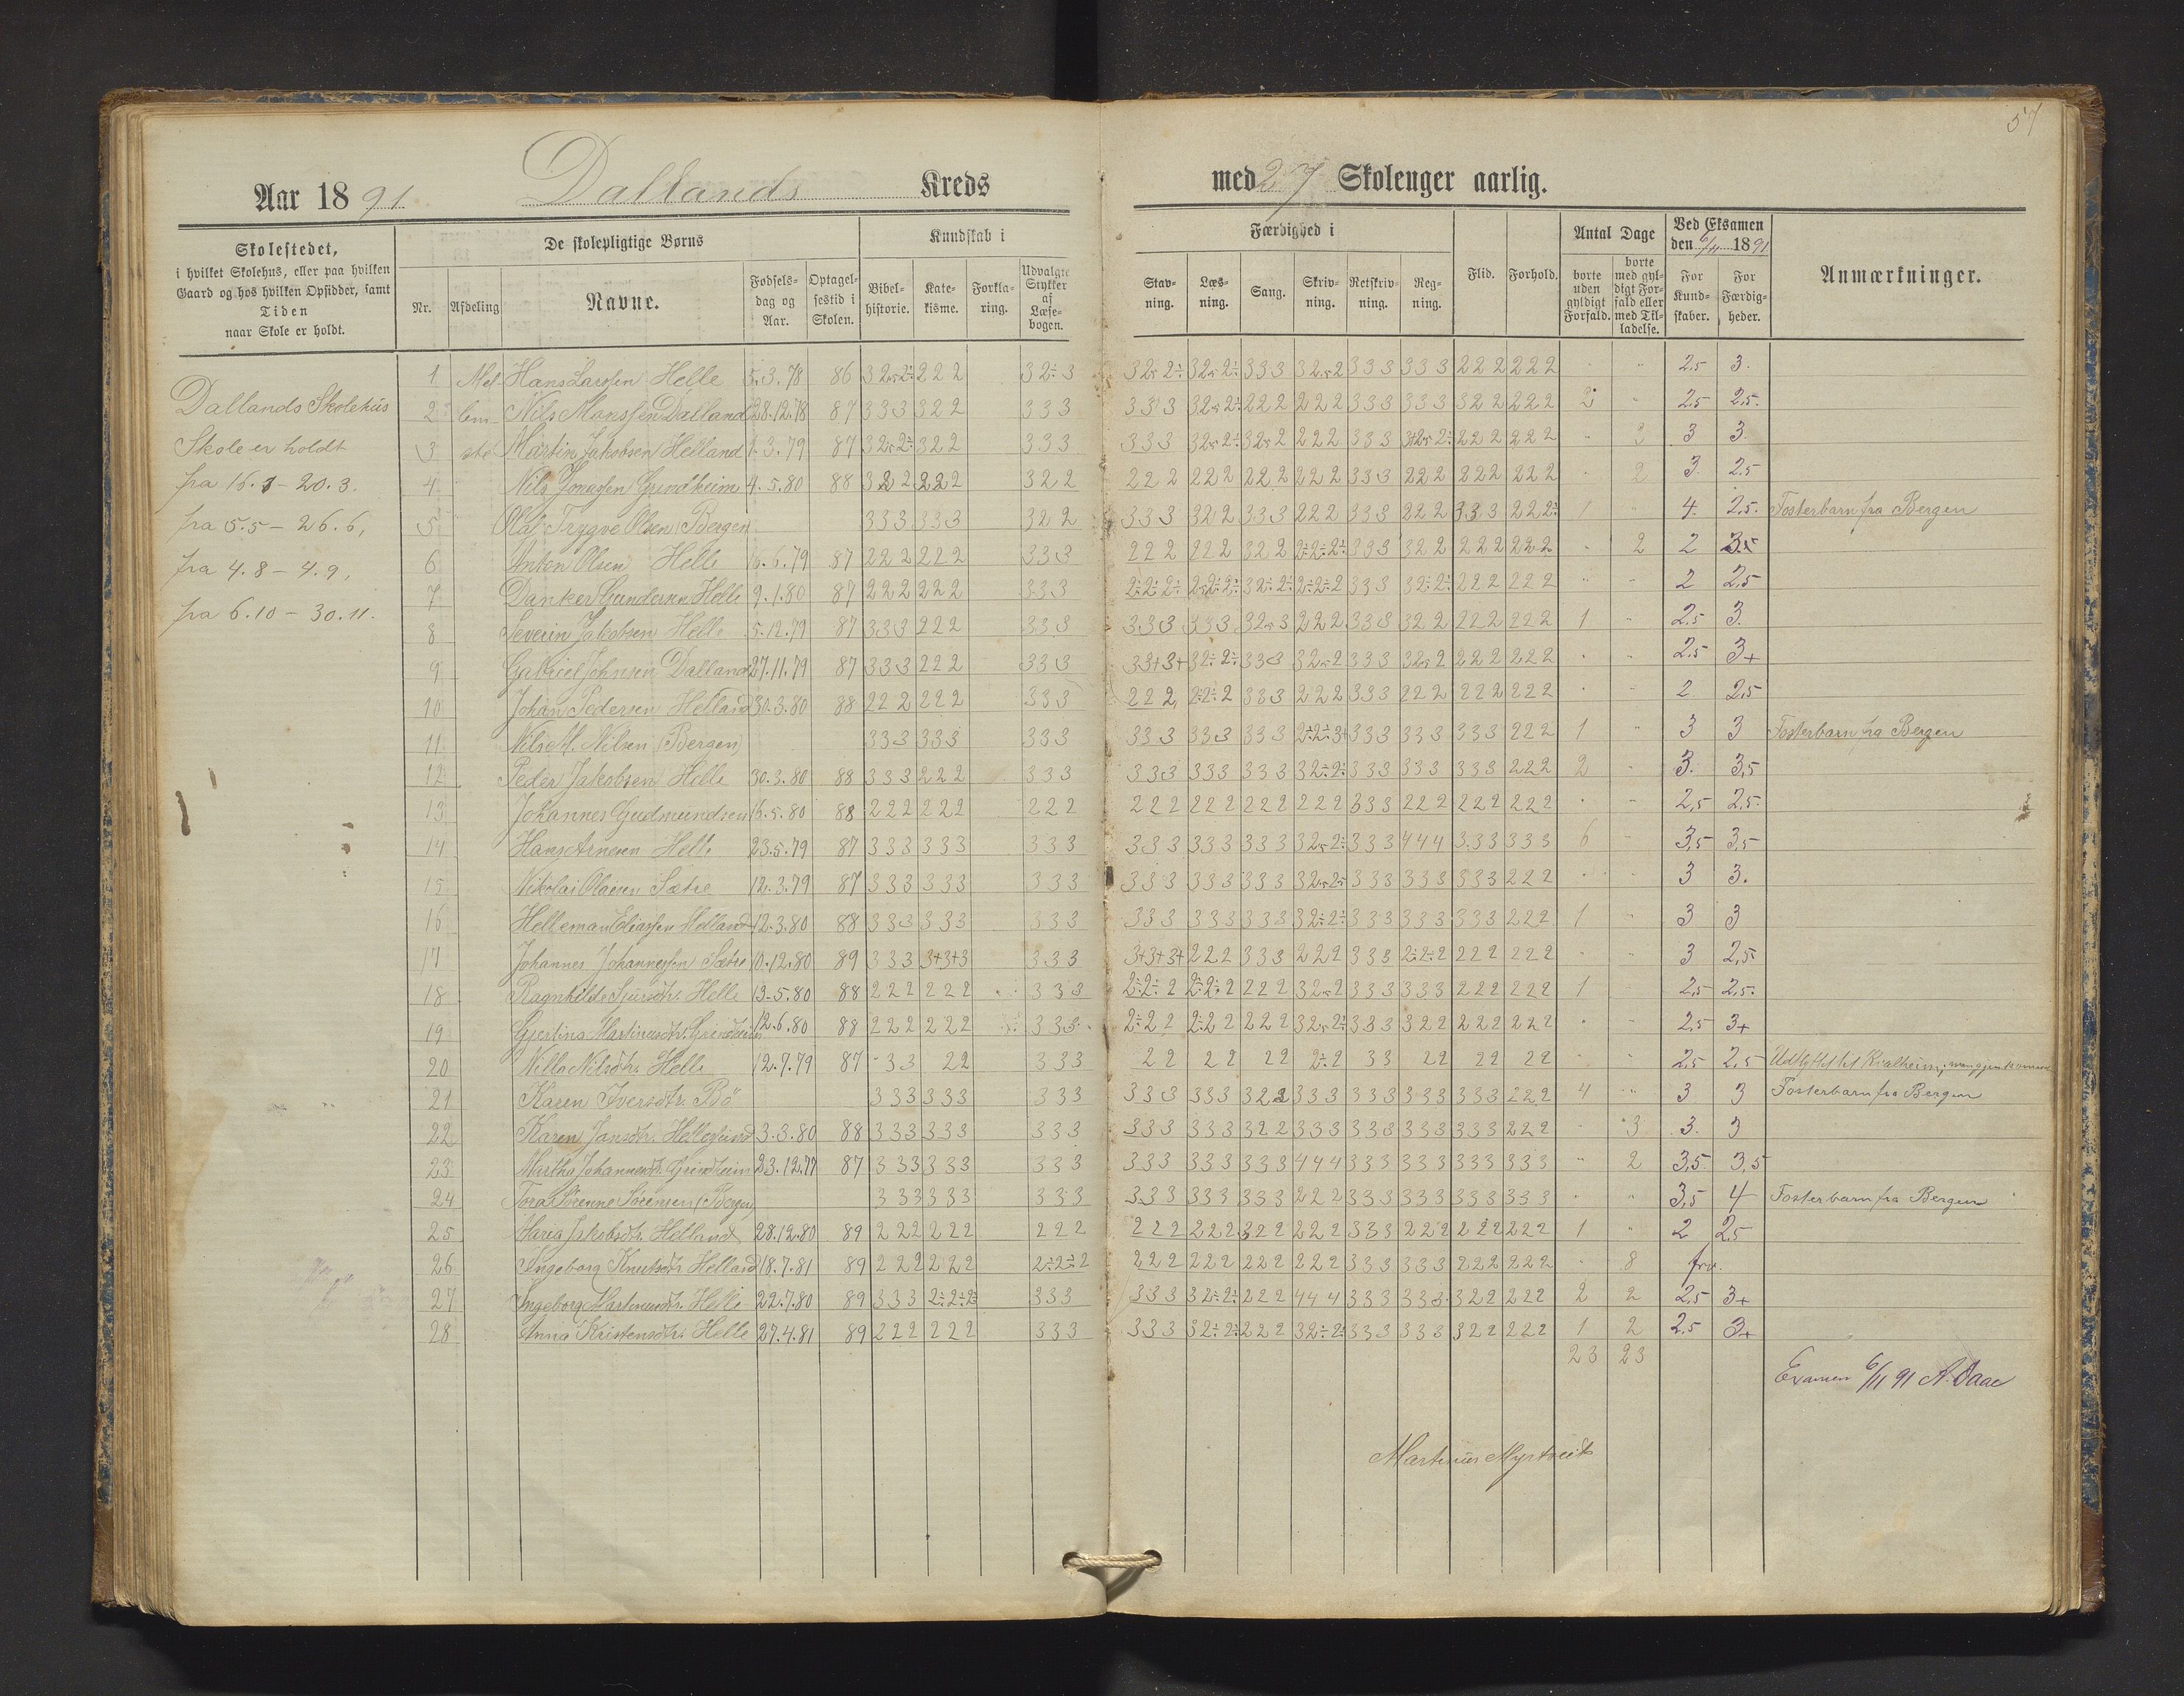 57
Aar 1891 Dallands Kreds
med 27 Skolenger aarlig.
Skolestedet, i hvilket Skolehus, eller paa hvilken Gaard og hos hvilken Opsidder, samt Tiden naar Skole er holdt.
De skolepligtige Børns
Nr. Afdeling Navne. Fødselsdag og Aar. Optagelsestid i Skolen.
Kundskab i
Bibelhistorie. Katekisme. Forklaring. Udvalgte Stykker af Læsebogen.
Færdighed i
Stavning. Læsning. Sang. Skrivning. Retskrivning. Regning. Flid. Forhold.
Antal Dage
borte uden gyldigt Forfald. borte med gyldigt Forfald eller med Tilladelse.
Ved Eksamen den 6/11 1891
For Kundskaber. For Færdigheder.
Anmærkninger.
Dallands Skolehus
Skole er holdt
fra 16.3 - 20.3.
fra 5.5 - 26.6,
fra 4.8 - 4.9,
fra 6.10 - 30.11.
1 Mel Hans Larssen Helle 5.3.78 86 222 333 333 222 222 2,5 3.
2 lem Nils Monssen Dalland 28.12.78 87 333 322 333 333 222 222 333 333 322 222 2 2,5 2,5.
3 ste Martin Jakobsen Helland 1.3.79 87 322 333 333 222 333 222 222 3 3 3
4 Nils Jonassen Grindheim 4.5.80 88 322 222 322 222 222 222 222 333 222 222 222 2 3. 2,5
5 Olaf Trygve Olsen (Bergen) 333 333 322 333 322 333 222 333 222 333 1 4. 2,5. Fosterbarn fra Bergen
6 Anton Olsen Helle 16.6.79 87 222 222 333 222 222 322 333 322 222 222 2 2
7 Danker Gundersen Helle 9.1.80 87 222 222 333 333 222 222 2 2,5
8 Severin Jakobsen Helle 5.12.79 87 333 222 333 333 333 222 333 322 222 222 1 2,5 3.
9 Gabriel Johnsen Dalland 27.11.79 87 333 222 333 333 333 222 222 2,5 3+
10 Johan Pedersen Helland 30.3.80 88 222 222 333 222 333 222 333 222 222 222 2 2,5
11 Nils M. Nilsen (Bergen) 333 333 333 333 333 333 333 333 333 222 1 3 3 Fosterbarn fra Bergen
12 Peder Jakobsen Helle 30.3.80 88 333 222 333 333 333 333 333 333 333 222 2 3. 3,5
13 Johannes Gudmundsen 16.5.80 88 222 222 222 222 222 222 222 333 222 222 222 2,5 2,5.
14 Hans Arnesen Helle 23.5.79 87 333 333 333 333 333 333 333 444 333 333 6 3,5 3,5
15 Nikolai Olaisen Sætre 12.3.79 87 333 333 333 333 333 333 333 333 333 222 3 3.
16 Helleman Eliassen Helland 12.3.80 88 333 333 333 333 333 333 333 333 333 222 1 3 3
17 Johannes Johannessen Sætre 10.12.80 89 333 3+3+3 333 3+3+3+ 222 333 222 333 222 222 3 2,5
18 Ragnhilde Sjursdtr. Helle 13.5.80 88 222 222 333 222 333 333 222 222 1 2,5 2,5.
19 Gjertina Martinusdtr. Grindheim 12.6.80 88 222 222 333 222 333 322 222 222 2,5 3+
20 Nilla Nilsdtr. Helle 12.7.79 87 33 22 333 22 22 22 33 22 22 22 2,5 2,5 Udflyttet til Kvalheim,
21 Karen Iversdtr. Bö 333 333 333 333 333 322 333 333 333 333 222 4 3 3 Fosterbarn fra Bergen
22 Karen Jansdtr. Hellesund 3.3.80 88 333 333 333 333 333 322 333 333 333 333 222 3 3. 3
23 Martha Johannesdt. Grindheim 23.12.77 87 333 333 333 333 333 333 444 333 333 333 333 2 3,5 3,5
24 Tora Sörenne Sörensen (Bergen) 333 333 333 333 333 333 222 333 333 333 333 3,5 4 Fosterbarn fra Bergen
25 Maria Jakobsdtr. Helland 28.12.80 89 222 222 222 222 222 322 222 333 222 222 222 1 2 2,5
26 Ingeborg Knutsdtr Helland 18.7.81 89 222 222 222 222 222 222 333 333 222 222 8 frv.
27 Ingeborg Martinusdtr. Helle 22.7.80 89 333 333 333 222 444 333 333 322 222 2 2 2,5 3+
28 Anna Kristensdtr. Helle 27.4.81 89 222 222 333 333 222 333 333 322 222 1 2 2,5 3+
23 23
Examen 6/11 91 A. Daae
Martinus Myrtveit